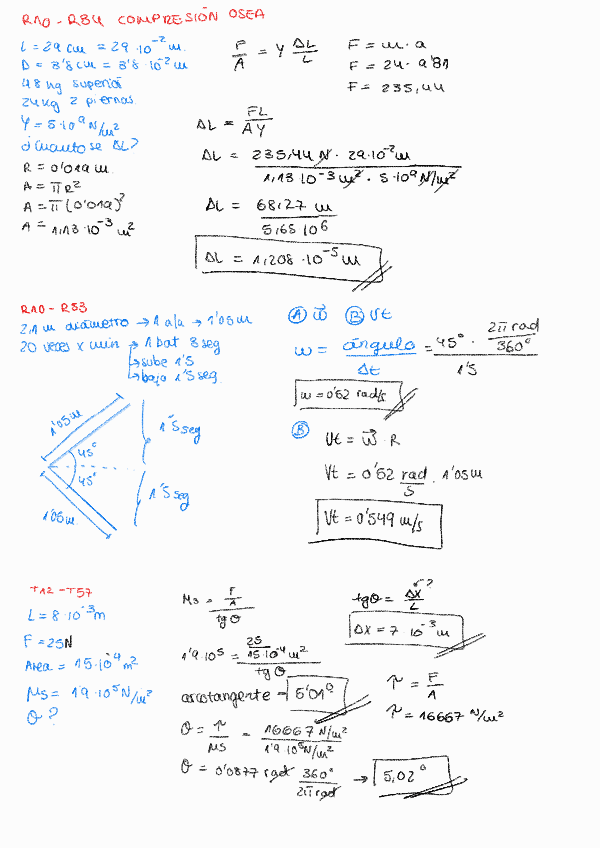 RA0 - R84 COMPRESIÓN OSEA
L = 29 cm = 29·10⁻² m.
D = 3'8 cm = 3'8·10⁻² m
48 kg superior
24 kg 2 piernas
Y = 5·10⁹ N/m²
¿Cuanto se ΔL?
R = 0'019 m.
A = πR²
A = π(0'019)²
A = 1,13·10⁻³ m²
F/A = Y ΔL/L
F = m·a
F = 24·9'81
F = 235,44
ΔL = FL/AY
ΔL = 235,44 N · 29·10⁻² m / 1,13·10⁻³ m² · 5·10⁹ N/m²
ΔL = 68,27 m / 5,65 10⁶
ΔL = 1,208·10⁻⁵ m
RA0 - R83
2,1 m diámetro → 1 ala → 1'05 m
20 veces x min → 1 bat 3 seg
→ sube 1'5
→ baja 1'5 seg.
1'05 m
45°
45°
1'05 m
1'5 seg
1'5 seg
Ⓐ w⃗ Ⓑ Vt
w = ángulo/Δt = 45° · 2π rad/360° / 1'5
w = 0'52 rad/s
Ⓑ
Vt = w⃗ · R
Vt = 0'52 rad/s · 1'05 m
Vt = 0'549 m/s
TA2 - T57
L = 8·10⁻³ m
F = 25 N
Area = 15·10⁻⁴ m²
Ms = 1'9·10⁵ N/m²
θ?
Ms = F/A / tg θ
1'9·10⁵ = 25/15·10⁻⁴ m² / tg θ
arcotangente = 5'01°
θ = τ/Ms = 16667 N/m² / 1'9·10⁵ N/m²
θ = 0'0877 rad 360°/2π rad → 5,02°
tg θ = Δx/L ?
Δx = 7 10⁻³ m
τ = F/A
τ = 16667 N/m²